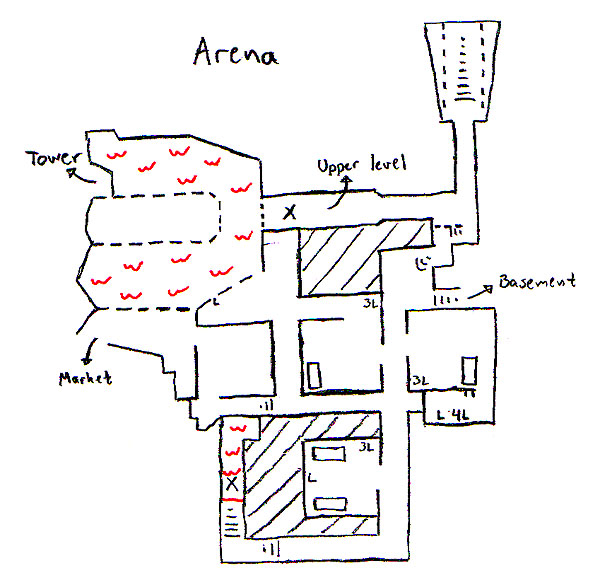 Arena
Tower
Upper level
X
Basement
L
3L
Market
3L
L·4L
3L
X
L